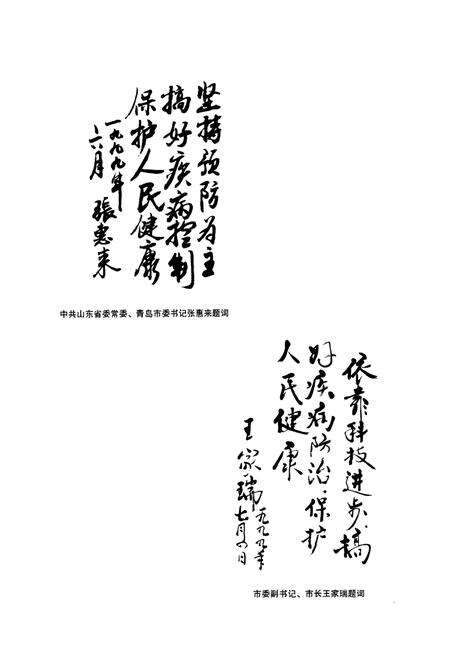 坚持预防为主
搞好疾病控制
保护人民健康
一九九九年
六月 張惠来
中共山东省委常委、青岛市委书记张惠来题词
依靠科技进步·搞
好疾病防治·保护
人民健康
王家瑞
一九九九年
七月八日
市委副书记、市长王家瑞题词